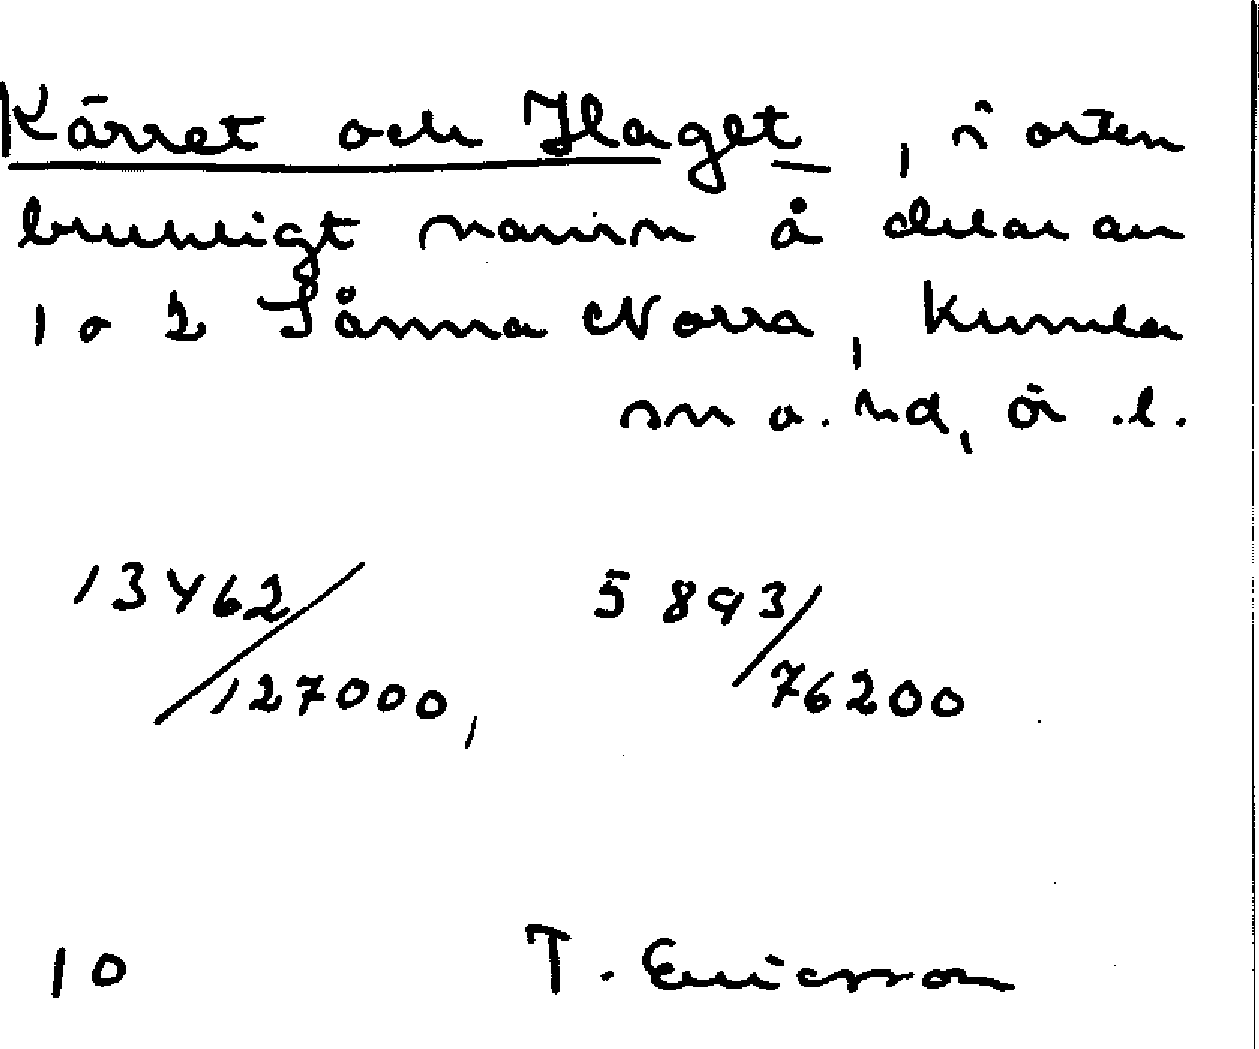 Kärret och Haget, i orten
brukligt namn å delar av
1 o 2 Sånna Norra, Kumla
sn o. hd, Ör.l.
13462/127000, 5893/76200
10 T. Ericsson